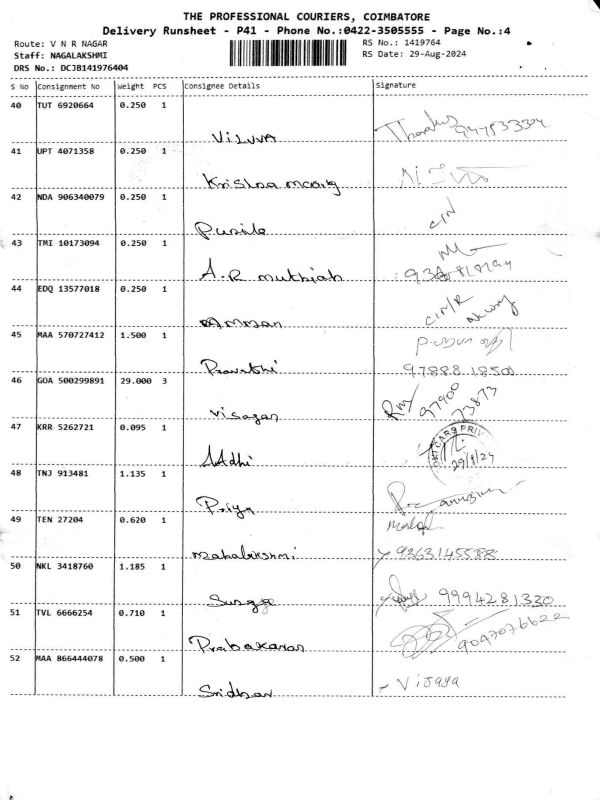 THE PROFESSIONAL COURIERS, COIMBATORE
Delivery Runsheet - P41 - Phone No.:0422-3505555 - Page No.:4
Route: V N R NAGAR
Staff: NAGALAKSHMI
DRS No.: DCJB141976404
RS No.: 1419764
RS Date: 29-Aug-2024
S No Consignment No Weight PCS Consignee Details Signature
40 TUT 6920664 0.250 1
VILVVA
41 UPT 4071358 0.250 1
Krishna
42 NDA 906340079 0.250 1
43 TMI 10173094 0.250 1
A.R muthiah
44 EDQ 13577018 0.250 1
Amman
45 MAA 570727412 1.500 1
97888 18501
46 GOA 500299891 29.000 3
Visagan
97900
73873
47 KRR 5262721 0.095 1
AAdhi
29/8/24
48 TNJ 913481 1.135 1
Priya
49 TEN 27204 0.620 1
mahalakshmi 9363145588
50 NKL 3418760 1.185 1
Surya 9994281330
51 TVL 6666254 0.710 1
Prabakaran 9097076622
52 MAA 866444078 0.500 1
Sridhar Vijaya